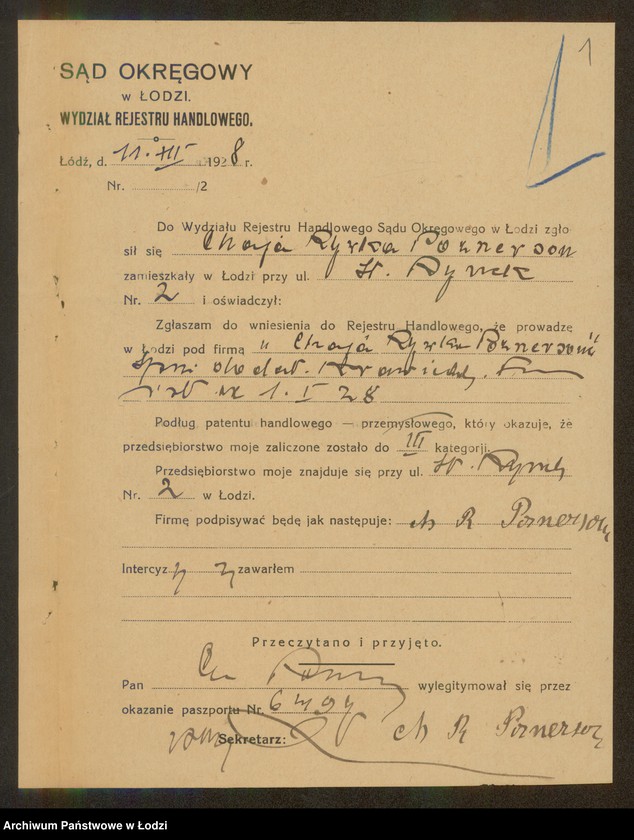 1
SĄD OKRĘGOWY
w ŁODZI.
WYDZIAŁ REJESTRU HANDLOWEGO.
Łódź, d. 11. XII 1928 r.
Nr. /2
Do Wydziału Rejestru Handlowego Sądu Okręgowego w Łodzi zgło-
sił się Chaja Rywka Poznerson
zamieszkały w Łodzi przy ul. St. Rynek
Nr. 2 i oświadczył:
Zgłaszam do wniesienia do Rejestru Handlowego, że prowadzę
w Łodzi pod firmą „Chaja Rywka Poznerson"
1. I 28
Podług patentu handlowego — przemysłowego, który okazuje, że
przedsiębiorstwo moje zaliczone zostało do III kategorji.
Przedsiębiorstwo moje znajduje się przy ul. St. Rynek
Nr. 2 w Łodzi.
Firmę podpisywać będę jak następuje: Ch R Poznerson
Intercyz zawarłem
Przeczytano i przyjęto.
Pan wylegitymował się przez
okazanie paszportu Nr.
Sekretarz: Ch R Poznerson
Archiwum Państwowe w Łodzi